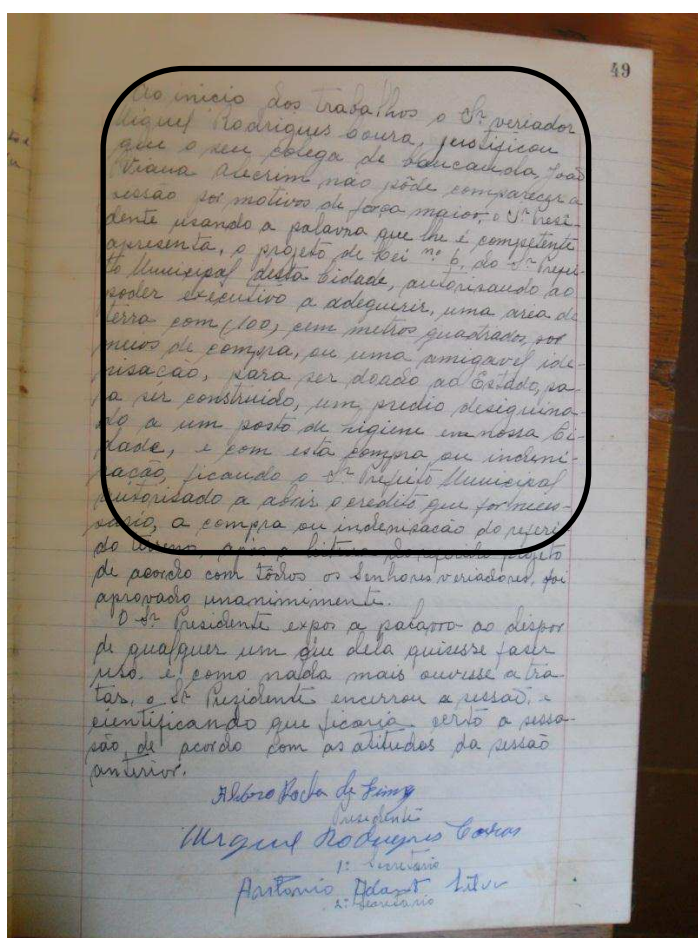 49
Ao inicio dos trabalhos o Sr. vereador
Miguel Rodrigues Soura, justificou
que o seu colega de bancanda, João
Viana Alecrim não pôde comparecer a
sessão por motivos de força maior, o Sr. Presi-
dente usando a palavra que lhe é competente
apresenta, o projeto de Lei nº 6, do Sr. Prefei-
to Municipal desta Cidade, autorisando ao
poder executivo a adequirir, uma area de
terra com (100) cem metros quadrados, por
meios de compra, ou uma amigavel ide-
nisacão, para ser doado ao Estado, pa-
ra ser construido, um predio desiguina-
do a um posto de higiene em nossa Ci-
dade, e com esta compra ou indeni-
zacão, ficando o Sr. Prefeito Municipal
autorisado a abrir o credito que for neces-
sario, a compra ou indenisacão do referi-
do terreno, após a leitura do referido projeto
de acordo com tôdos os Senhores veriadores, foi
aprovado unanimimente.
O Sr. Presidente expos a palavra ao dispor
de qualquer um que dela quizesse faser
uso, e como nada mais ouvesse a tra-
tar, o Sr. Prezidente encerrou a sessão, e
cientificando que ficaria a
são de acordo com as atitudes da sessão
anterior.
Rocha de
Presidente
Miguel Rodrigues
1º Secretario
Antonio Silva
2º Secretario